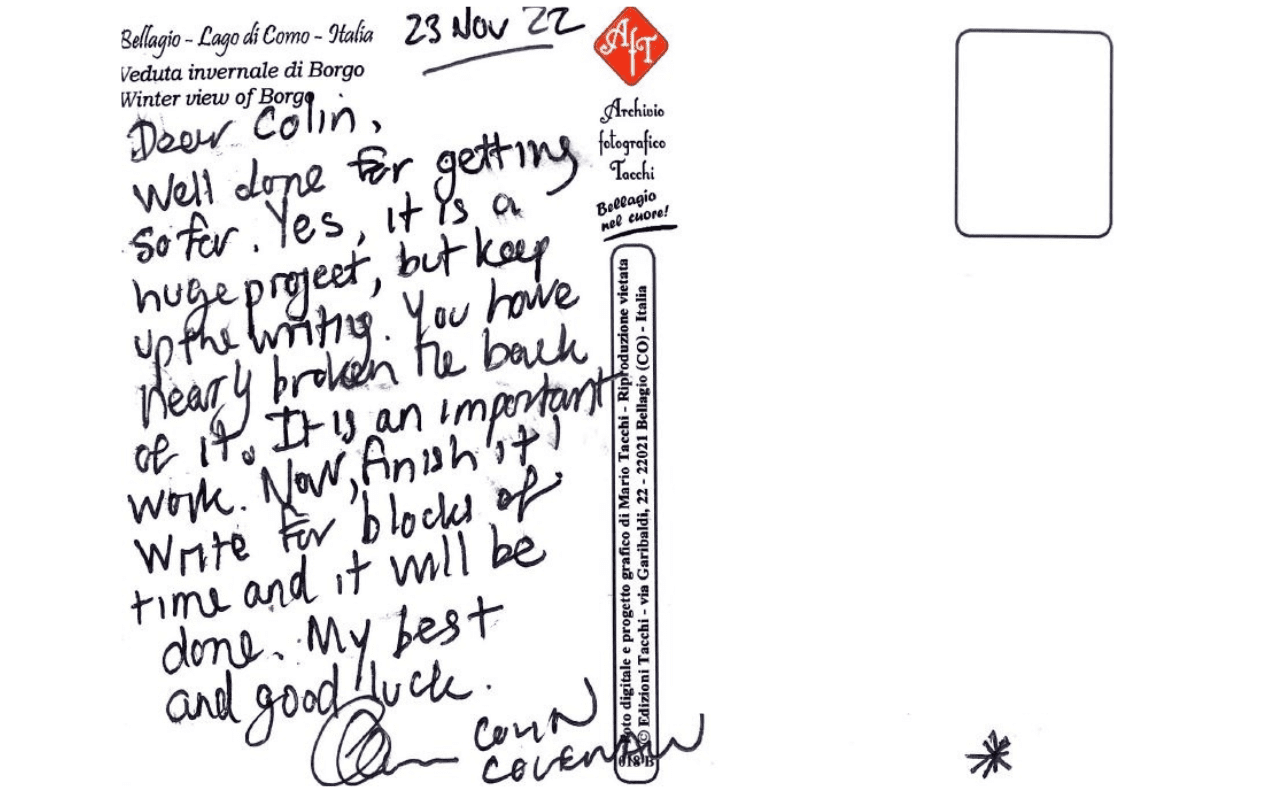 Bellagio - Lago di Como - Italia
23 Nov 22
Veduta invernale di Borgo
Winter view of Borgo
Dear Colin,
Well done for getting
so far. Yes, it is a
huge project, but keep
up the writing. You have
nearly broken the back
of it. It is an important
work. Now, finish it!
Write for blocks of
time and it will be
done. My best
and good luck.
COLIN
AfT
Archivio
fotografico
Tacchi
Bellagio
nel cuore!
Foto digitale e progetto grafico di Mario Tacchi - Riproduzione vietata
© Edizioni Tacchi - via Garibaldi, 22 - 22021 Bellagio (CO) - Italia
018 B